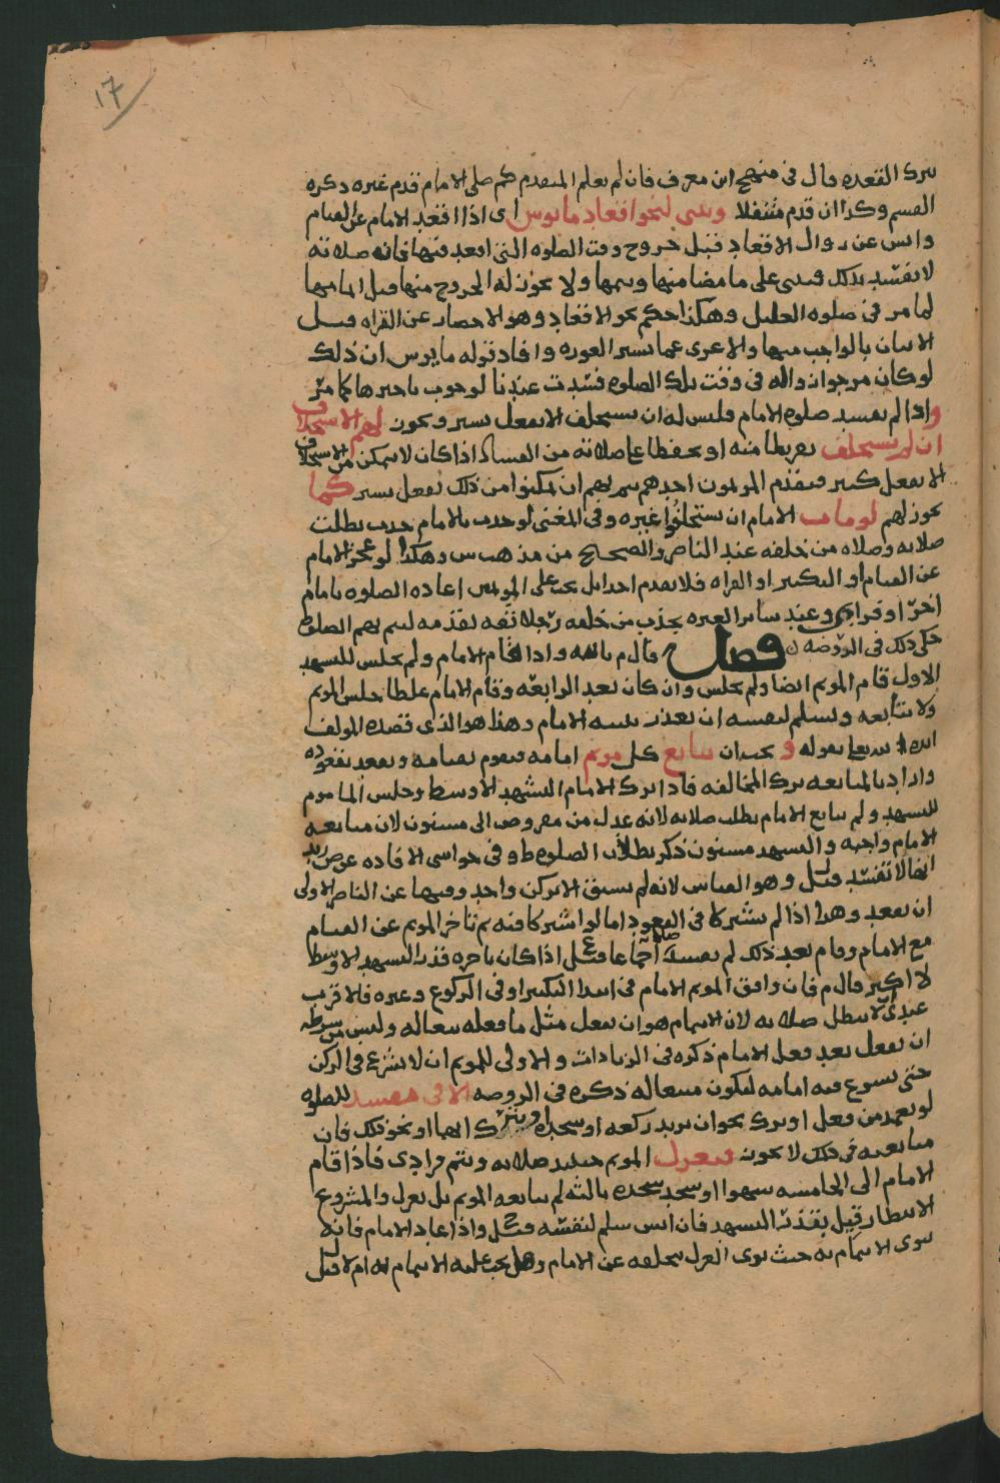 ١٧
بترك القعده قال في منهج ابن معرف فان لم يعلم المتقدم كم صلى الامام قدم غيره ذكره
الفسم وكذا ان قدم متنفلا ويبنى لنحو اقعاد مايوس اى اذا اقعد الامام عن القيام
وايس عن زوال الاقعاد قبل خروج وقت الصلوه التى اقعد فيها فانه صلاته
لا تفسد بذلك فيبنى على ما مضا منها ويتمها ولا يجوز له الخروج منها قبل اتمامها
لما مر في صلوه العليل وهكذا حكم نحو الاقعاد وهو الاحصار عن القراه قبل
الاتيان بالواجب منها والاعرى عما يستر العوره وافاد قوله مايوس ان ذلك
لو كان مرجوا زواله في وقت تلك الصلوه فسدت عندنا لوجوب تاخيرها كما مر
واذا لم تفسد صلوه الامام فليس له ان يستخلف الا بفعل يسير ويجوز لهم الاستخلاف
ان لم يستخلف تفريطا منه او تحفظا على صلاته من الفساد اذا كان لا يتمكن من الاستخلاف
الا بفعل كثير فيقدم المؤتمون احدهم يتم بهم ان تمكنوا من ذلك بفعل يسير كما
يجوز لهم لو مات الامام ان يستخلفوا غيره وفي المغنى لو حدث بالامام حدث بطلت
صلاته وصلاه من خلفه عند الناصر والصحيح من مذهب وهكذا لو عجز الامام
عن القيام او التكبير او القراه فلا يقدم احدا بل يجب على المؤتمين اعاده الصلوه بامام
اخر او فرادى وعند سائر العتره يجذب من خلفه رجلا ثقه يقدمه ليتم بهم الصلوه
حكى ذلك في الروضه فصل قال م بالله واذا قام الامام ولم يجلس للتشهد
الاول قام المؤتم ايضا ولم يجلس وان كان بعد الرابعه وقام الامام غلطا جلس المؤتم
ولا يتابعه ويسلم لنفسه ان تعذر الامام وهذا هو الذى قصده المولف
ايده الله تعالى بقوله و يجب ان يتابع كل مؤتم امامه فيقوم بقيامه ويقعد بقعوده
واراد بالمتابعه ترك المخالفه فاذا ترك الامام التشهد الاوسط وجلس الماموم
للتشهد ولم يتابع الامام بطلت صلاته لانه عدل من مفروض الى مسنون لان متابعه
الامام واجبه والتشهد مسنون ذكر بطلان الصلوه ط وفي حواشى الافاده عن ض زيد
انها لا تفسد قيل وهو القياس لانه لم يسبق الا بركن واحد وفيها عن الناصر الاولى
ان يقعد وهذا اذا لم يشتركا في القعود اما لو اشتركا فيه ثم تاخر المؤتم عن القيام
مع الامام وقام بعد ذلك لم تفسد صلاته اجماعا قيل اذا كان تاخره قدر التشهد الاوسط
لا اكثر قال م فان وافق المؤتم الامام في ابتدا التكبير او في الركوع وغيره فالاقرب
عندى لا تبطل صلاته لان الائتمام هو ان يفعل مثل ما فعله متبعا له وليس من شرطه
ان يفعل بعد فعل الامام ذكره في الزيادات والاولى للمؤتم ان لا يشرع في الركن
حتى يسرع فيه امامه ليكون متبعا له ذكره في الروضه الا في مفسد للصلوه
لو تعمد من فعل او ترك نحو ان يزيد ركعه او سجده او يترك ايهما او نحو ذلك فان
متابعته في ذلك لا يجوز فيعزل المؤتم حينئذ صلاته ويتم فرادى فاذا قام
الامام الى الخامسه سهوا او سجد سجده ثالثه لم يتابعه المؤتم بل يعزل والمشروع
الانتظار قيل بقدر التشهد فان ايس سلم لنفسه قيل واذا عاد الامام فانه
ينوى الائتمام به حيث نوى العزل بتخلفه عن الامام وهل يجب عليه الائتمام به ام لا قيل